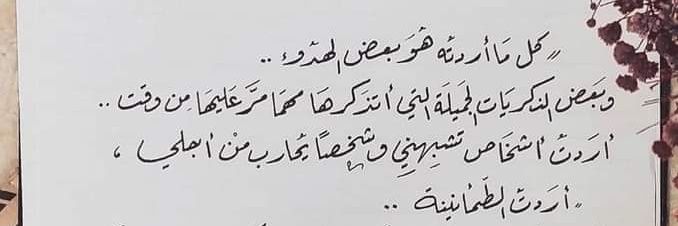 " كل مَا أردته هُوَ بعض الهدّوء ..
وبَعض الذكريَات الجميلَة التي أتذكرهَا مهمَا مرَّ عَليهَا مِن وقت ..
أرَدتُ أشخَاص تشبِهنيِ وشخصًا يُحارب منْ أجلي ،
" أرَدت الطّمأنينة ..